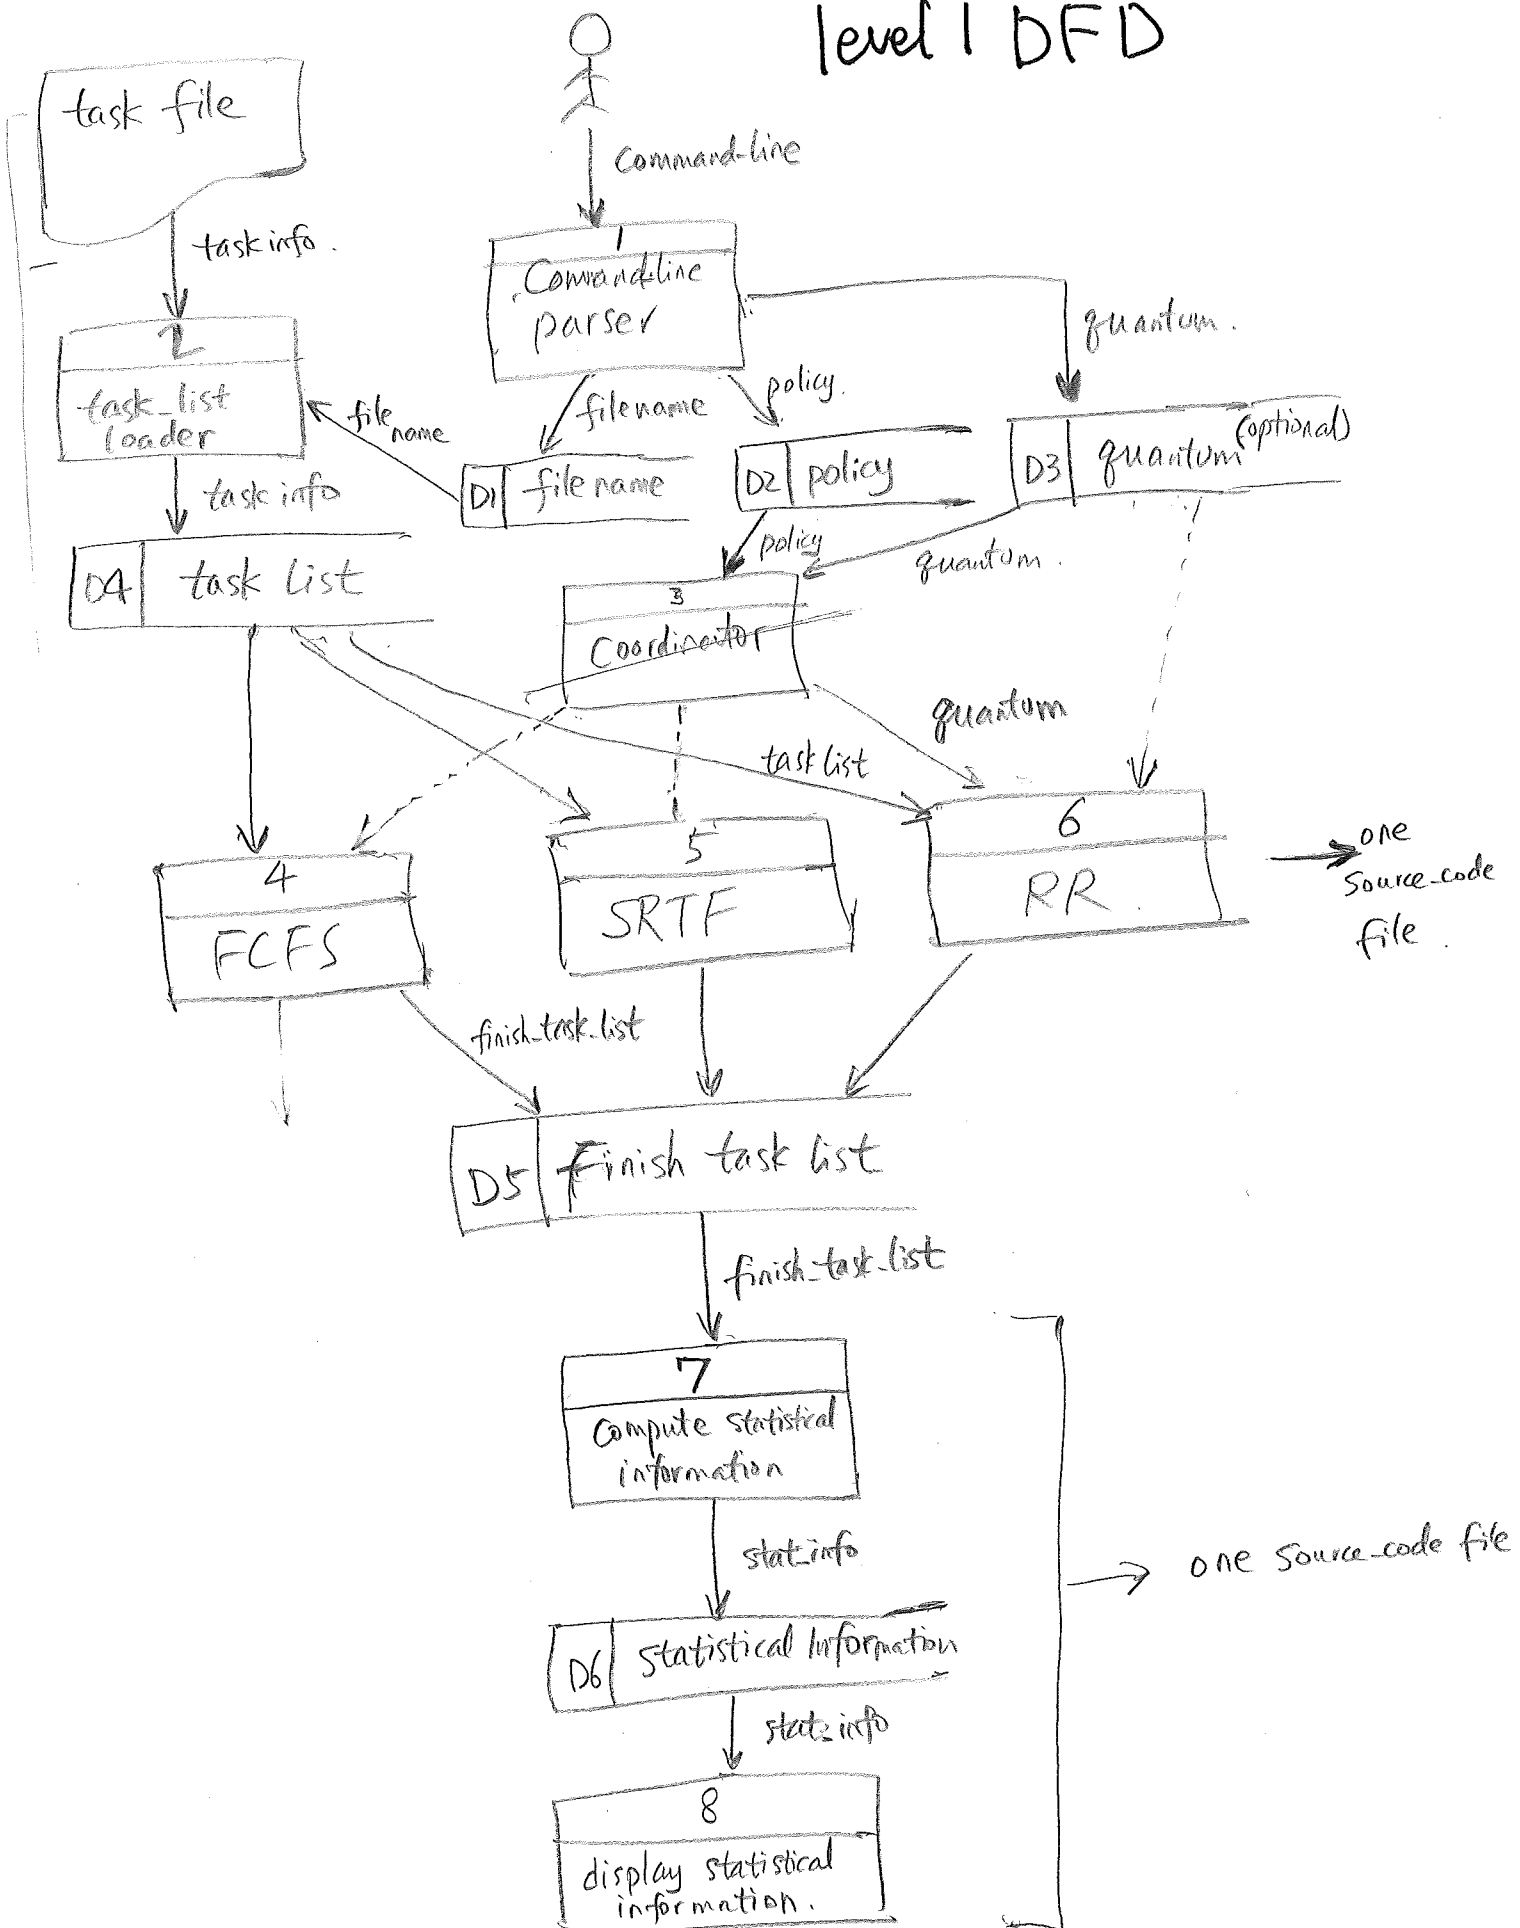 level 1 DFD
task file
command-line
task info.
1
Command-line
parser
quantum.
2
task_list
loader
file
name
filename
policy.
(optional)
D1
file name
D2
policy
D3
quantum
task info
policy
quantum.
D4
task list
3
Coordinator
quantum
task list
4
FCFS
5
SRTF
6
RR.
one
source_code
file.
finish_task_list
D5
Finish task list
finish_task_list
7
compute statistical
information
stat_info
one source_code file
D6
statistical Information
stat_info
8
display statistical
information.